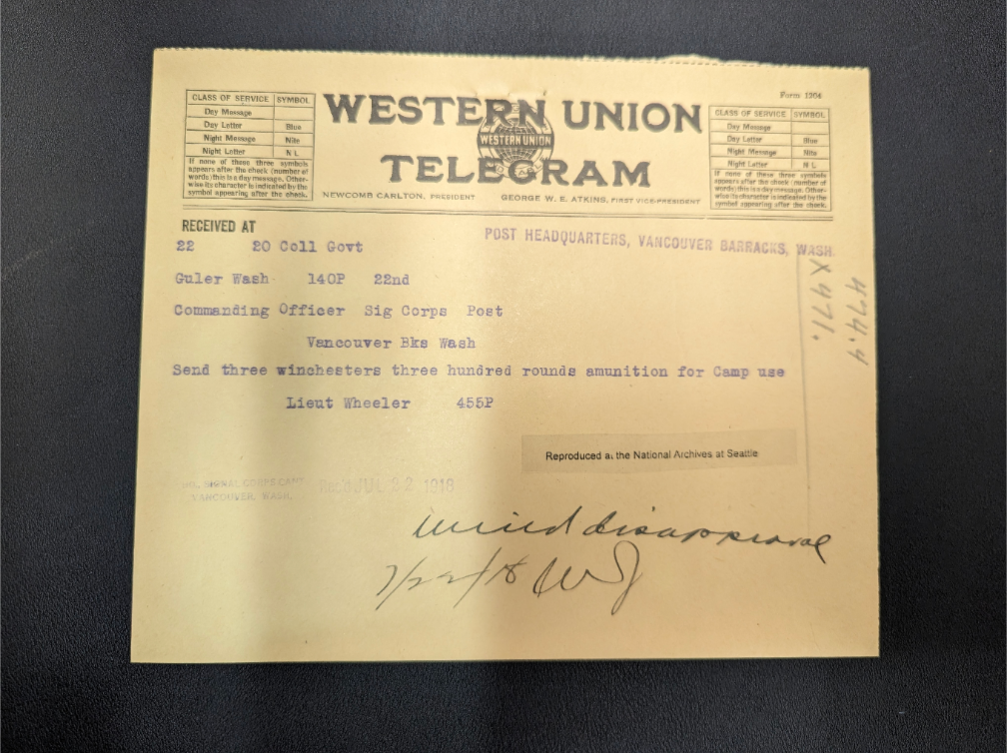 Form 1204
CLASS OF SERVICE SYMBOL
Day Message
Day Letter Blue
Night Message Nite
Night Letter N L
If none of these three symbols
appears after the check (number of
words) this is a day message. Other-
wise its character is indicated by the
symbol appearing after the check.
WESTERN UNION
WESTERN UNION
TELEGRAM
NEWCOMB CARLTON, PRESIDENT GEORGE W. E. ATKINS, FIRST VICE-PRESIDENT
CLASS OF SERVICE SYMBOL
Day Message
Day Letter Blue
Night Message Nite
Night Letter N L
If none of these three symbols
appears after the check (number of
words) this is a day message. Other-
wise its character is indicated by the
symbol appearing after the check.
RECEIVED AT
POST HEADQUARTERS, VANCOUVER BARRACKS, WASH.
22 20 Coll Govt
Guler Wash 140P 22nd
Commanding Officer Sig Corps Post
Vancouver Bks Wash
Send three winchesters three hundred rounds amunition for Camp use
Lieut Wheeler 455P
474.4
X 471.
Reproduced at the National Archives at Seattle
SIGNAL CORPS CANT.
VANCOUVER, WASH.
Rec'd JUL 22 1918
wired disapproval
7/22/18